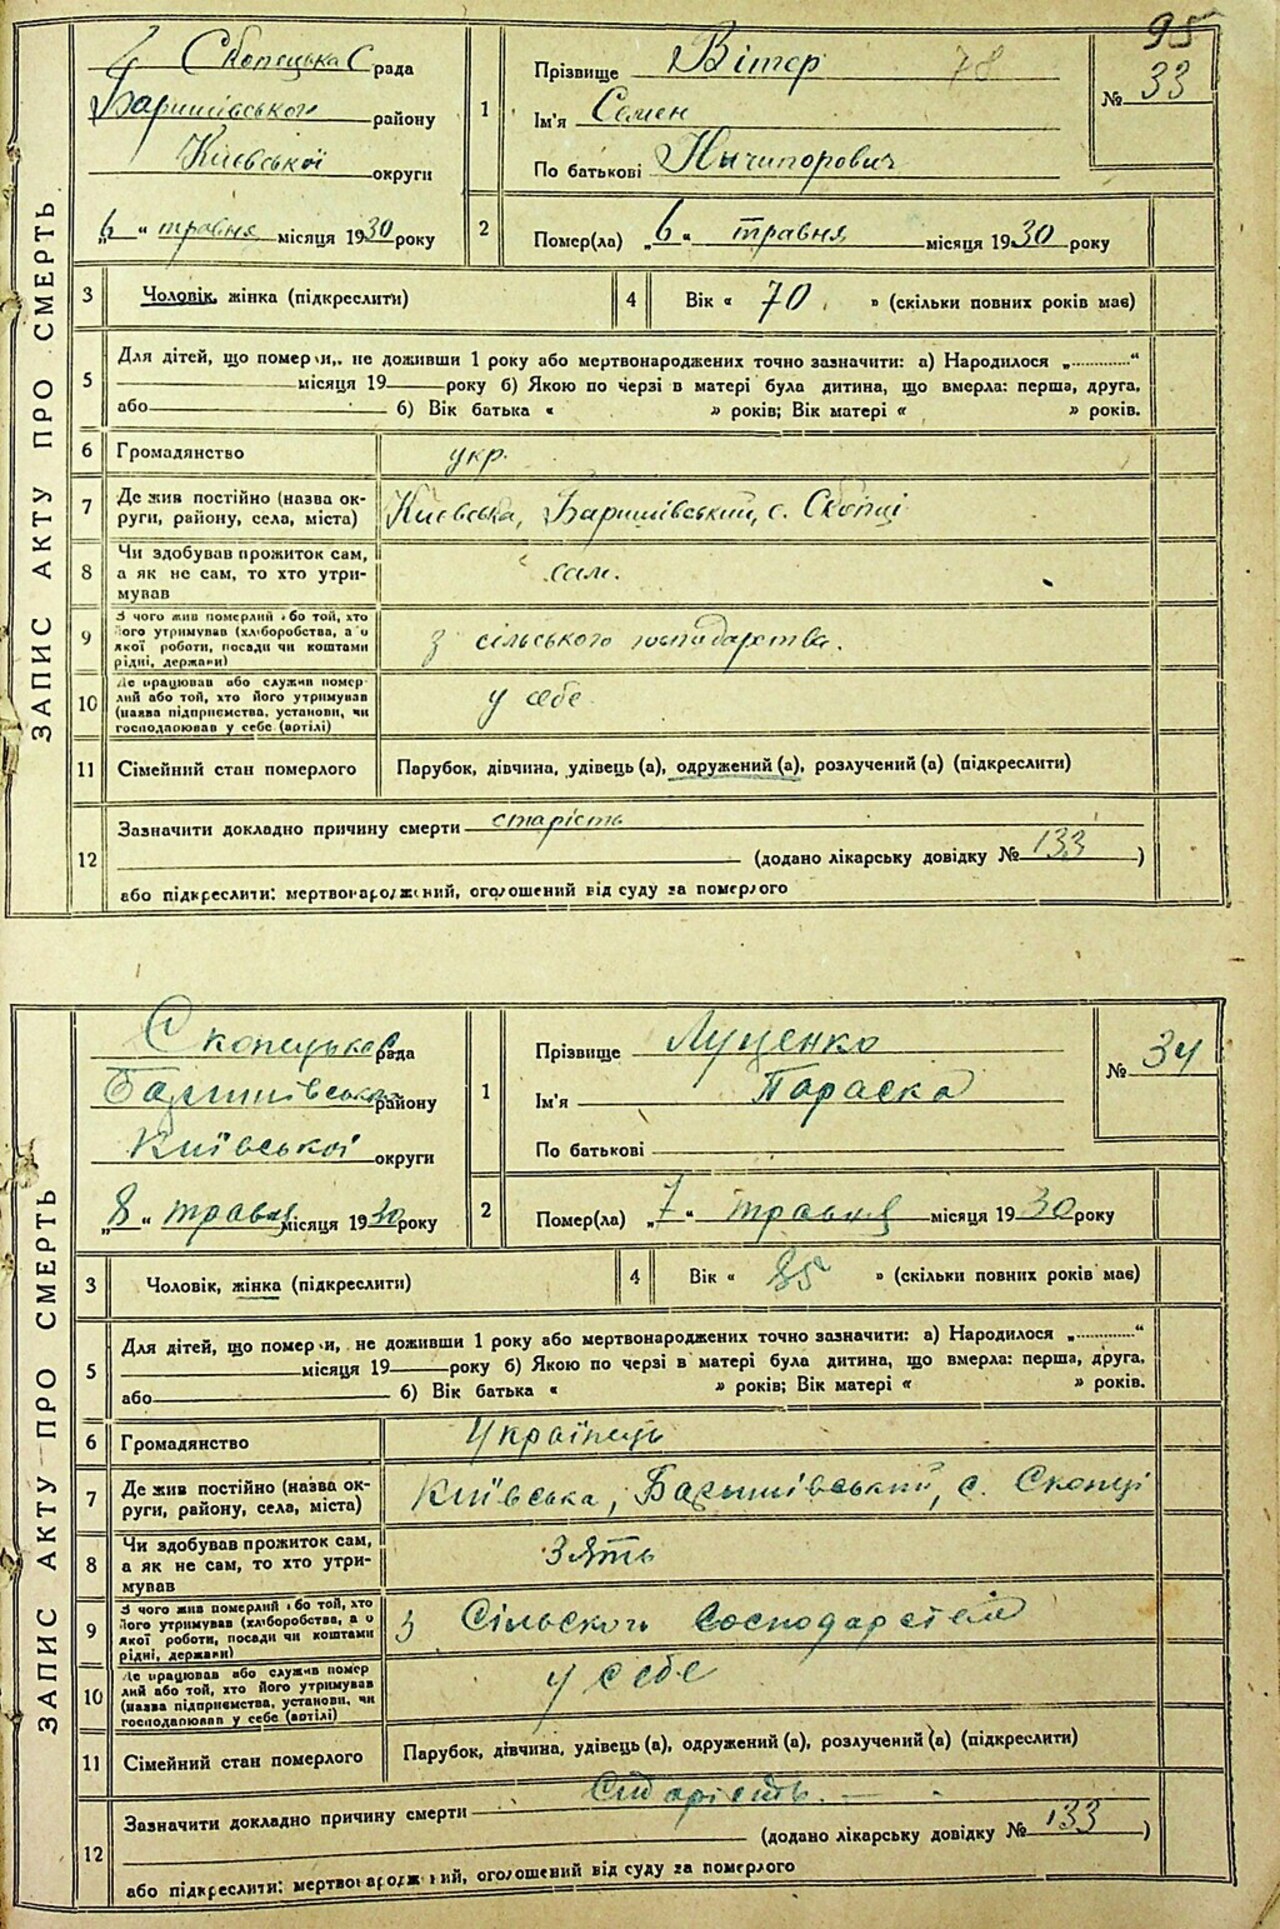 95
Скопецька С рада
Баришівського району
Київської округи
„6“ травня місяця 1930 року
1
Прізвище Вітер 78
Ім'я Семен
По батькові Ничипорович
№ 33
2
Помер(ла) „6“ травня місяця 1930 року
ЗАПИС АКТУ ПРО СМЕРТЬ
3 Чоловік, жінка (підкреслити)
4 Вік « 70 » (скільки повних років має)
5 Для дітей, що померли, не доживши 1 року або мертвонароджених точно зазначити: а) Народилося „............“
місяця 19 року б) Якою по черзі в матері була дитина, що вмерла: перша, друга,
або б) Вік батька « » років; Вік матері « » років.
6 Громадянство укр.
7 Де жив постійно (назва ок-
руги, району, села, міста) Киевська, Баришівський, с. Скопці
8 Чи здобував прожиток сам,
а як не сам, то хто утри-
мував сам.
9 З чого жив померлий або той, хто
його утримував (хліборобства, а о
якої роботи, посади чи коштами
рідні, держави) з сільського господарства.
10 Де працював або служив помер
лий або той, хто його утримував
(назва підприємства, установи, чи
господарював у себе (артілі) у себе
11 Сімейний стан померлого Парубок, дівчина, удівець (а), одружений (а), розлучений (а) (підкреслити)
12 Зазначити докладно причину смерти старість
(додано лікарську довідку № 133 )
або підкреслити: мертвонароджений, оголошений від суду за померлого
Скопецька С рада
Баришівського району
Київської округи
„8“ травня місяця 1930 року
1
Прізвище Луценко
Ім'я Параска
По батькові
№ 34
2
Помер(ла) „7“ травня місяця 1930 року
ЗАПИС АКТУ ПРО СМЕРТЬ
3 Чоловік, жінка (підкреслити)
4 Вік « 85 » (скільки повних років має)
5 Для дітей, що померли, не доживши 1 року або мертвонароджених точно зазначити: а) Народилося „............“
місяця 19 року б) Якою по черзі в матері була дитина, що вмерла: перша, друга,
або б) Вік батька « » років; Вік матері « » років.
6 Громадянство Українець
7 Де жив постійно (назва ок-
руги, району, села, міста) Київська, Баришівський, с. Скопці
8 Чи здобував прожиток сам,
а як не сам, то хто утри-
мував Зять
9 З чого жив померлий або той, хто
його утримував (хліборобства, а о
якої роботи, посади чи коштами
рідні, держави) з Сільского Господарства
10 Де працював або служив помер
лий або той, хто його утримував
(назва підприємства, установи, чи
господарював у себе (артілі) у себе
11 Сімейний стан померлого Парубок, дівчина, удівець (а), одружений (а), розлучений (а) (підкреслити)
12 Зазначити докладно причину смерти Старість.
(додано лікарську довідку № 133 )
або підкреслити: мертвонароджений, оголошений від суду за померлого